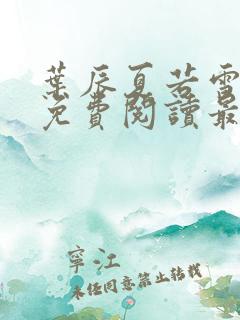 葉辰夏若雪
免費閱讀最
寧江
未經同意禁止轉載